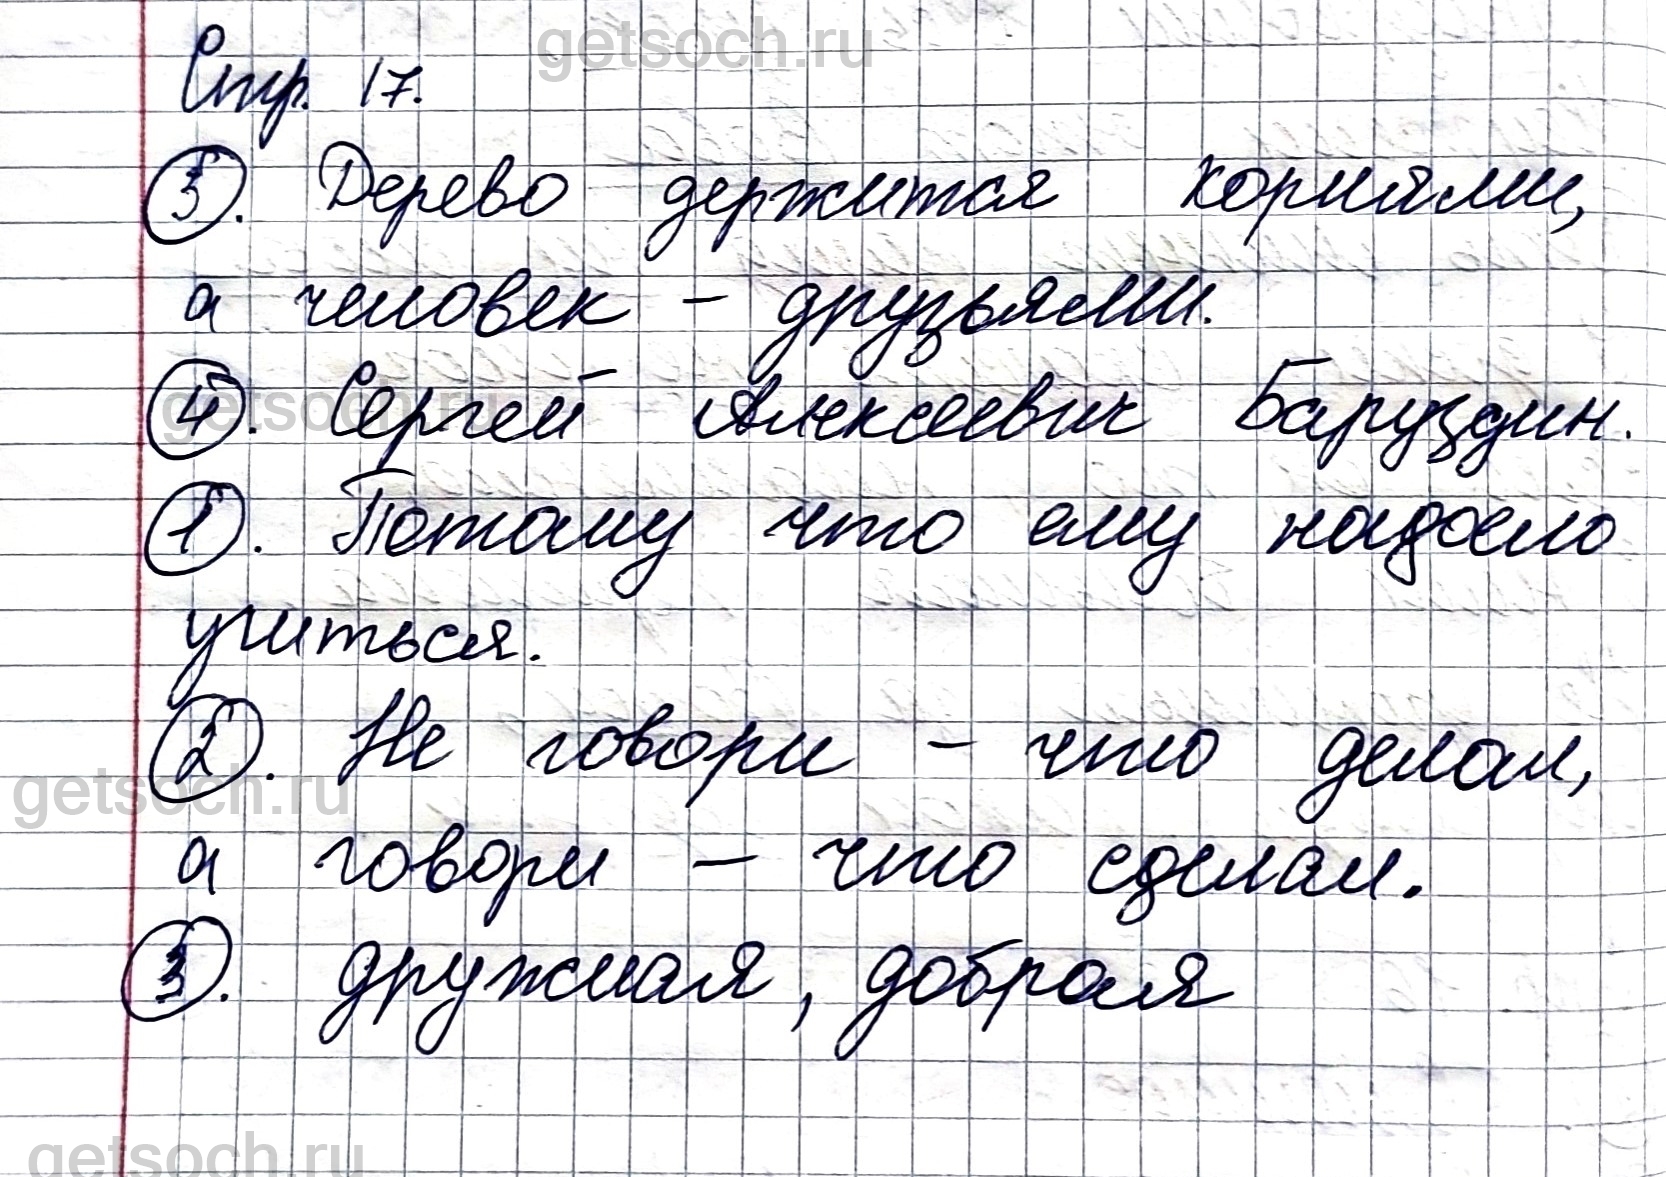 getsoch.ru
Стр. 17.
3. Дерево держится корнями,
а человек – друзьями.
getsoch.ru
4. Сергей Алексеевич Баруздин.
1. Потому что ему надоело
учиться.
2. Не говори – что делал,
getsoch.ru
а говори – что сделал.
3. дружная, добрая
getsoch.ru